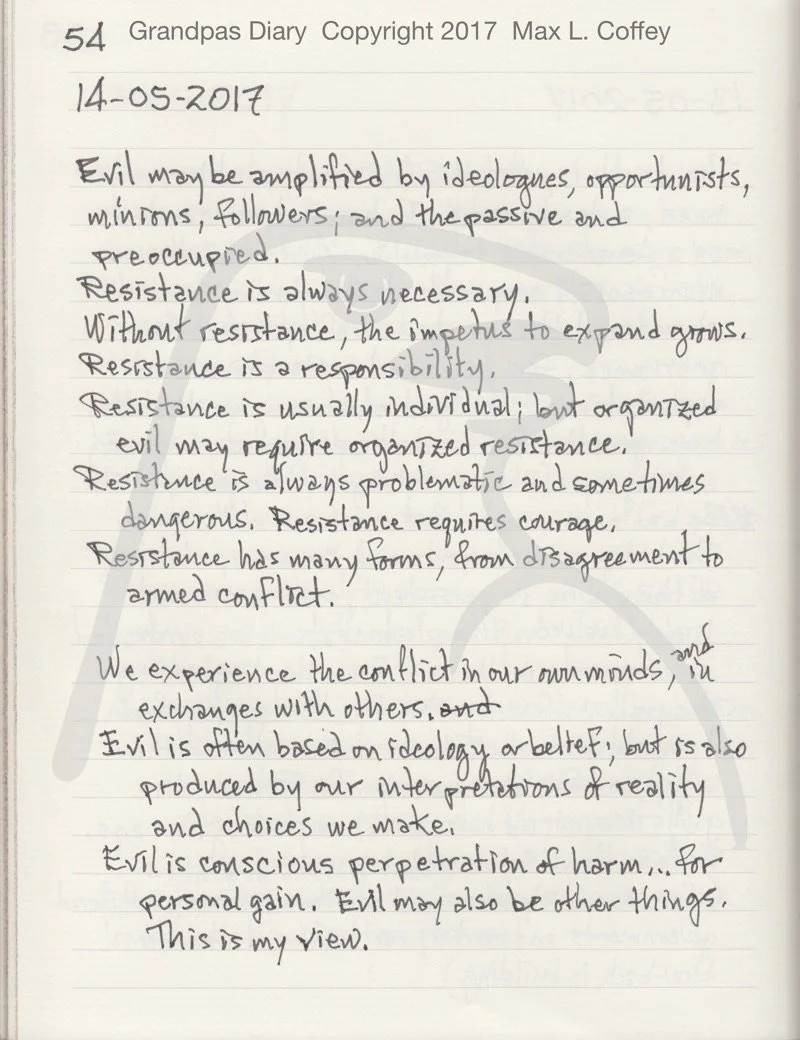 54 Grandpas Diary Copyright 2017 Max L. Coffey
14-05-2017
Evil may be amplified by ideologues, opportunists,
minions, followers; and the passive and
preoccupied.
Resistance is always necessary.
Without resistance, the impetus to expand grows.
Resistance is a responsibility.
Resistance is usually individual; but organized
evil may require organized resistance.
Resistance is always problematic and sometimes
dangerous. Resistance requires courage.
Resistance has many forms, from disagreement to
armed conflict.
We experience the conflict in our own minds, and in
exchanges with others. and
Evil is often based on ideology or belief; but is also
produced by our interpretations of reality
and choices we make.
Evil is conscious perpetration of harm... for
personal gain. Evil may also be other things.
This is my view.